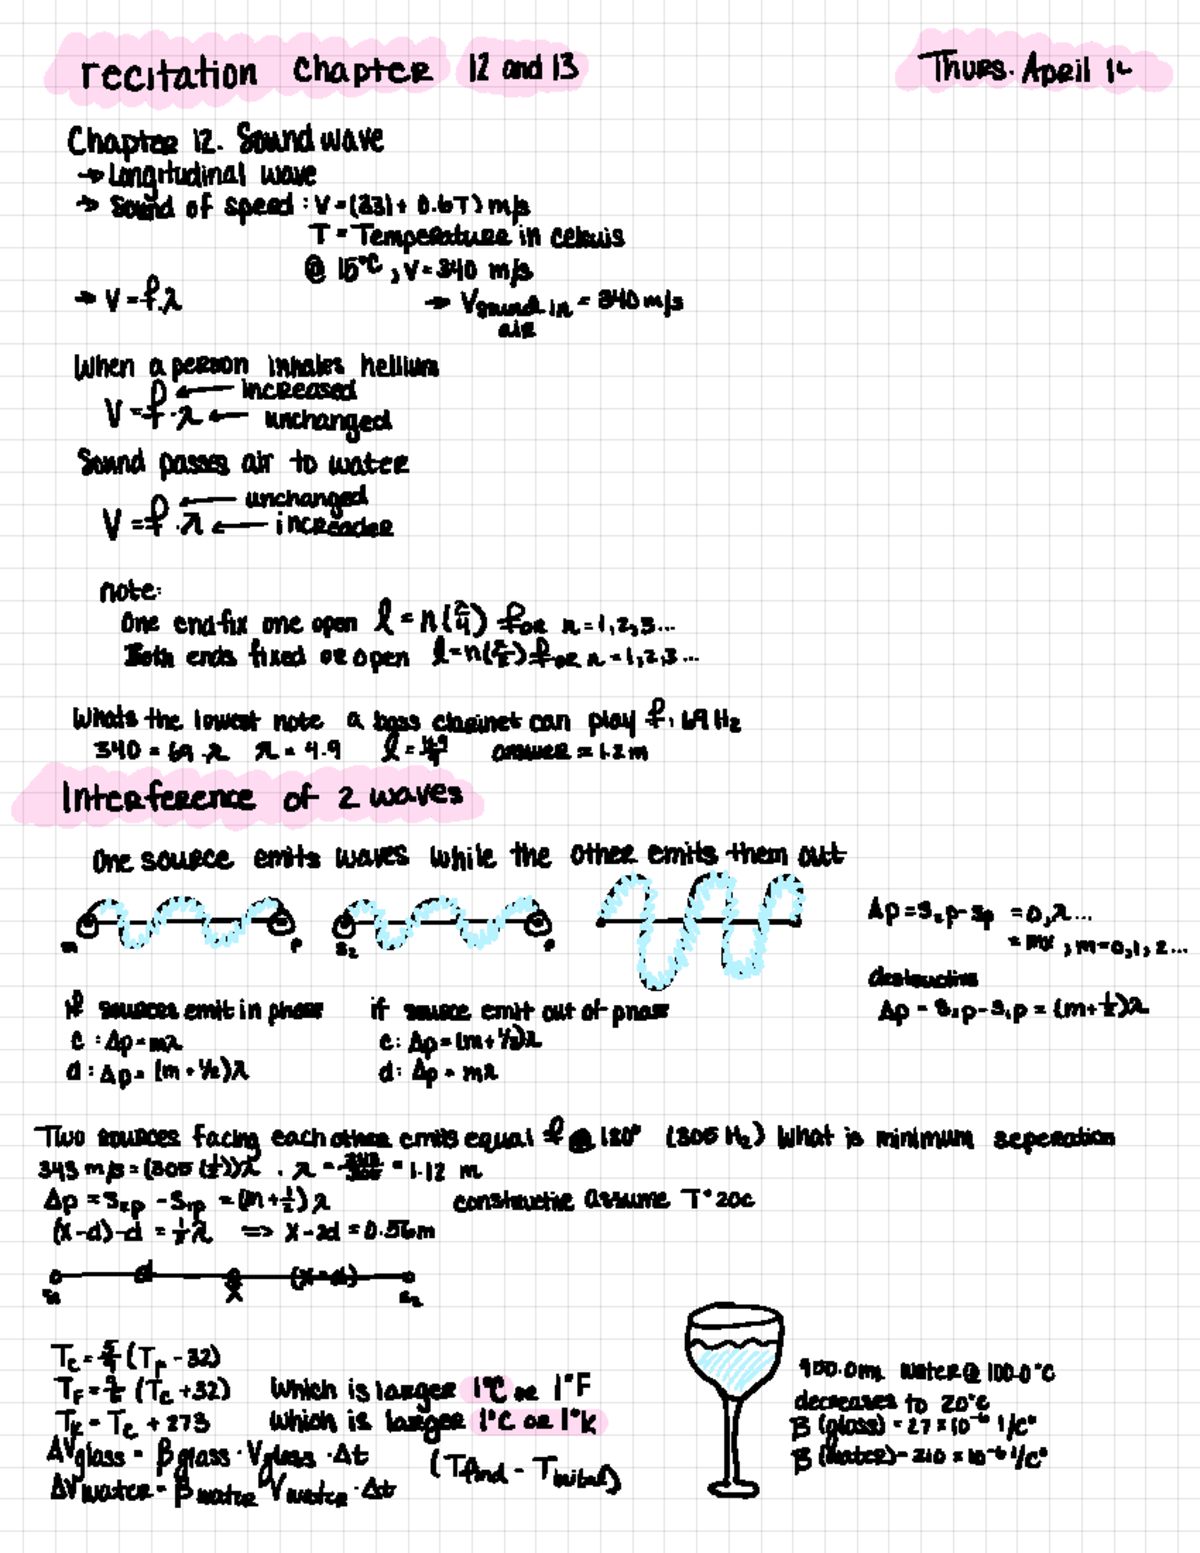 recitation chapter 12 and 13
Thurs. April 14
Chapter 12. Sound wave
→ Longitudinal wave
→ Sound of speed : V = (331 + 0.6T) m/s
T = Temperature in celsuis
@ 15°C, V = 340 m/s
→ V = f.λ → Vsound in air = 340 m/s
When a person inhales hellium
V = f ← increased
· λ ← unchanged
Sound passes air to water
V = f ← unchanged
· λ ← increader
note:
One end fix one open l = n(λ/4) for n = 1, 2, 3...
Both ends fixed or open l = n(λ/2) for n = 1, 2, 3...
Whats the lowest note a bass clarinet can play f. 69 Hz
340 = 69 · λ λ = 4.9 l = 4.9/4 answer = 1.2 m
Interference of 2 waves
One source emits waves while the other emits them out
Δp = s₂p - s₁p = 0, λ...
= mλ, m = 0, 1, 2...
destructive
Δp = s₂p - s₁p = (m + ½)λ
P S₂ P
if sources emit in phase
c : Δp = mλ
d : Δp = (m + ½)λ
if source emit out of phase
c : Δp = (m + ½)λ
d : Δp = mλ
Two sources facing each other emits equal f @ 180° (305 Hz) What is minimum seperation
343 m/s = (305 (½))λ . λ = 343/305 = 1.12 m
Δp = S₂p - S₁p = (m + ½)λ constructive assume T° 20c
(x-d)-d = ½λ ⇒ x-2d = 0.56m
d x (x-d) S₂
Tc = 5/9 (TF - 32)
TF = 9/5 (Tc + 32) Which is larger 1°C or 1°F
Tk = Tc + 273 Which is larger 1°C or 1°k
ΔVglass = βglass · Vglass · Δt (Tfinal - Tinitial)
ΔVwater = βwater Vwater · Δt
900.0mL water @ 100.0°C
decreases to 20°c
B (glass) = 27 x 10⁻⁶ 1/C°
B (water) = 210 x 10⁻⁶ 1/C°